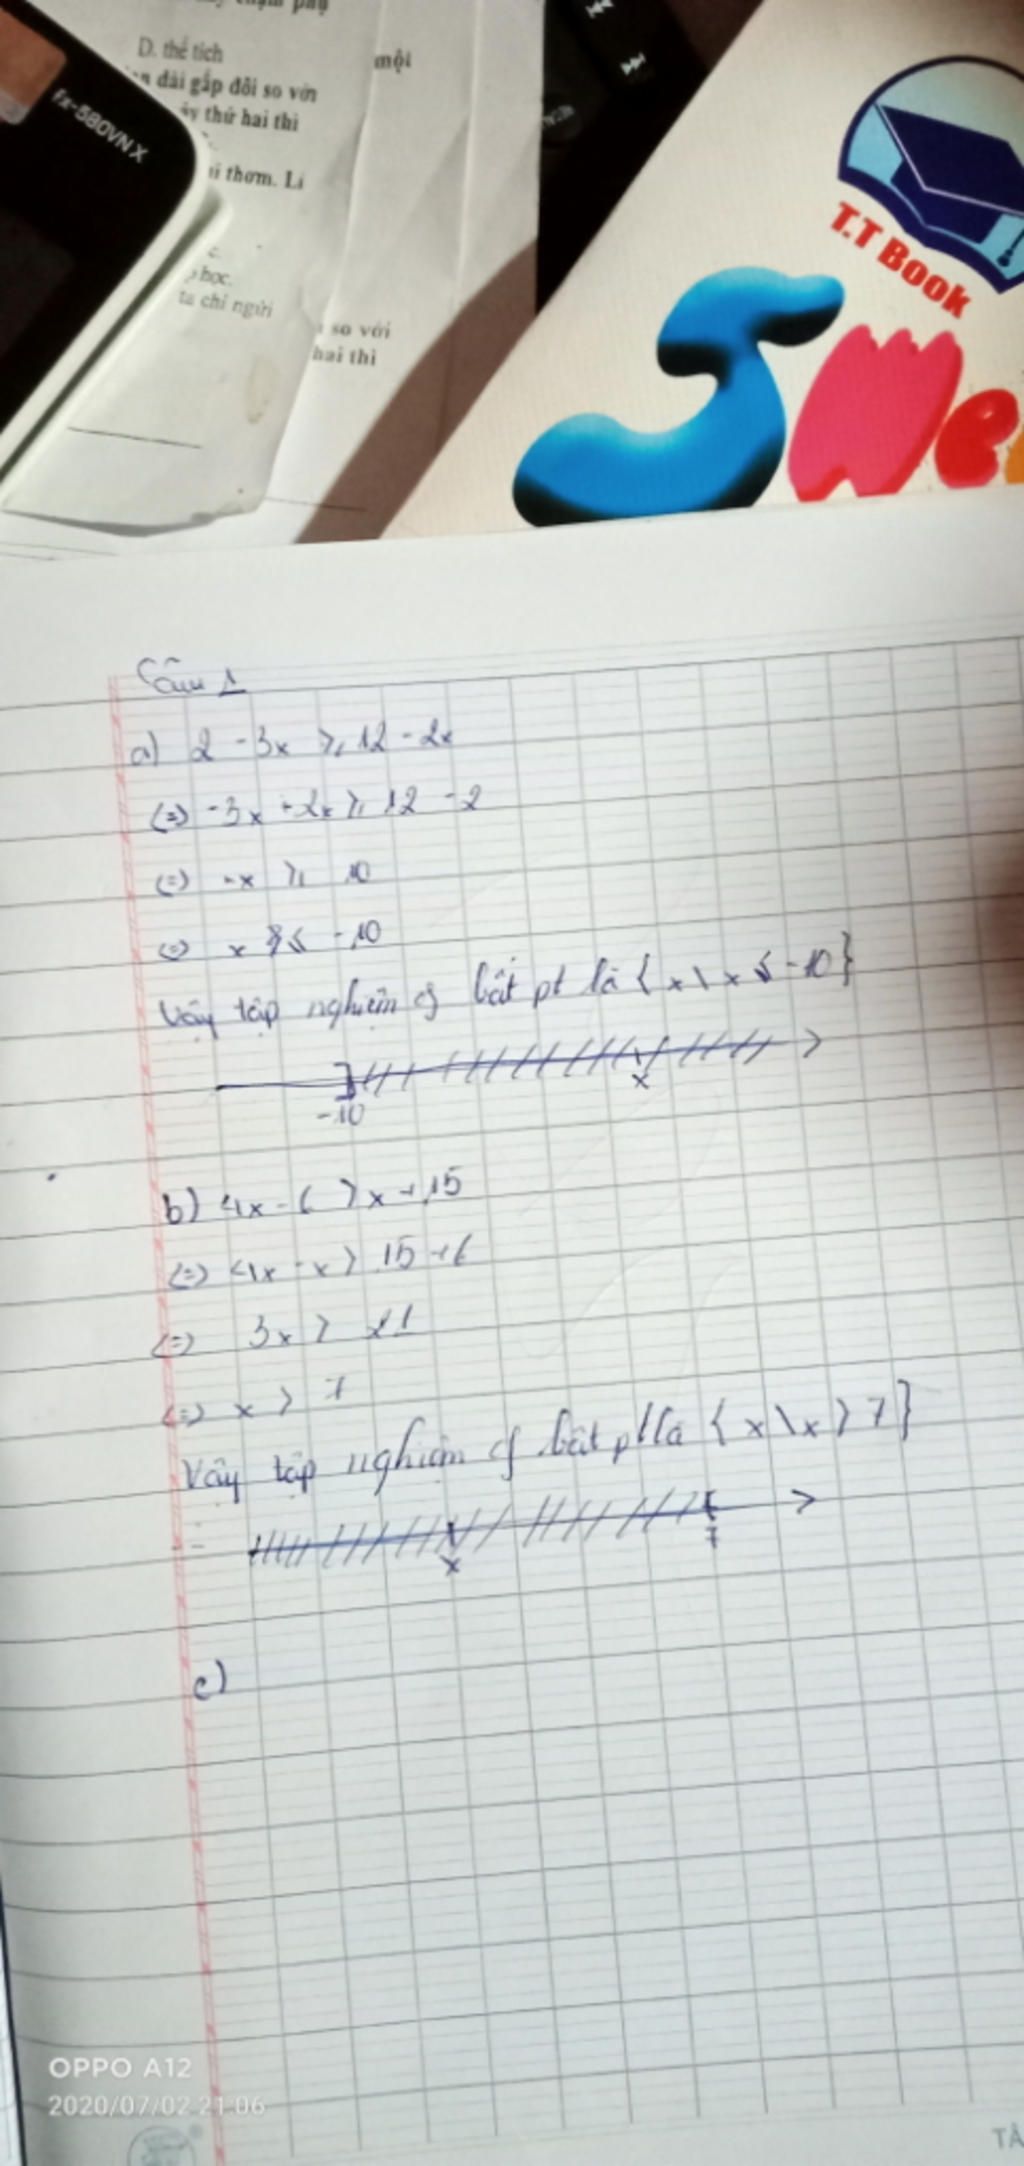 D. thể tích
một
dài gấp đôi so với
thứ hai thì
thơm. Li
fx-580VN X
học.
ta chỉ ngửi
so với
hai thì
T.T Book
Câu 1
a) 2 - 3x ≥ 12 - 2x
<=> -3x + 2x ≥ 12 - 2
<=> -x ≥ 10
<=> x ≤ -10
Vậy tập nghiệm of bất pt là { x \ x ≤ -10 }
-10
x
b) 4x - 6 > x + 15
<=> 4x - x > 15 + 6
<=> 3x > 21
<=> x > 7
Vậy tập nghiệm of bất pt là { x \ x > 7 }
x
7
c)
OPPO A12
2020/07/02 21:06